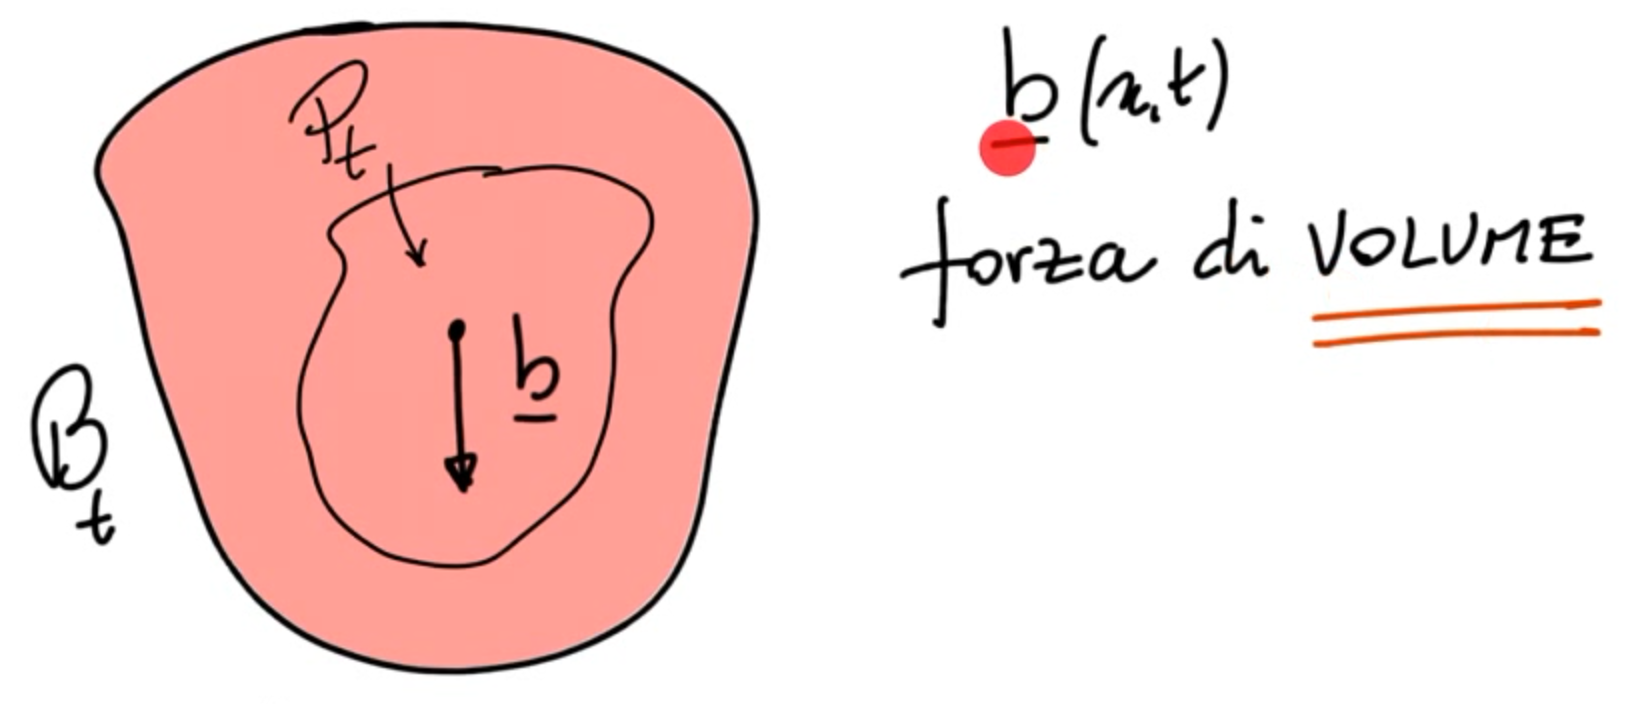 P_t
b
B_t
b(x,t)
forza di VOLUME